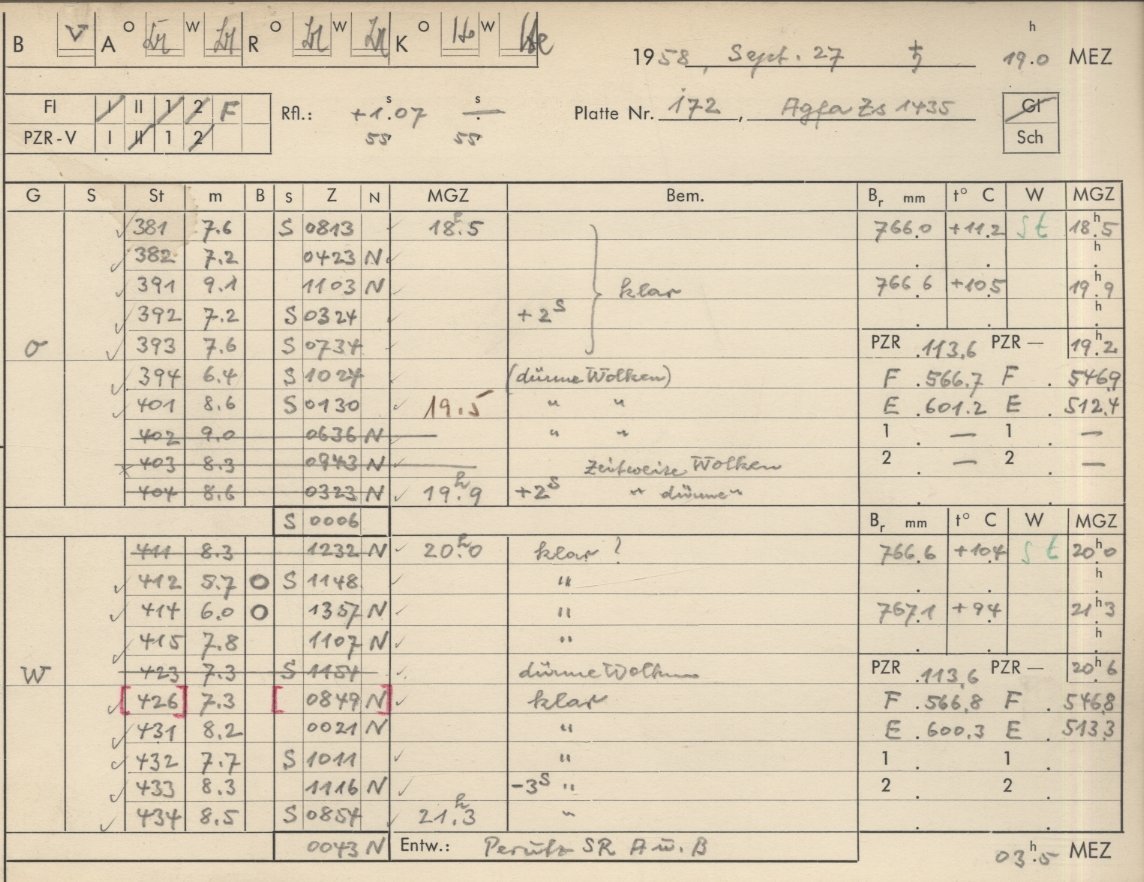 B V A O W R O W K O W
1958, Sept. 27 ♄ 19.0 h MEZ
FI I II 1 2 F Rfl.: +1.07 s — s Platte Nr. 172, Agfa Zs 1435 Gl
PZR-V I II 1 2 55 55 Sch
G S St m B S Z N MGZ Bem. Br mm t° C W MGZ
381 7.6 S 0813 18h.5 766.0 +11.2 St 18h.5
382 7.2 0423 N h
391 9.1 1103 N klar 766.6 +10.5 19h.9
392 7.2 S 0324 +2s h
O 393 7.6 S 0734 PZR 113.6 PZR — 19h.2
394 6.4 S 1024 (dünne Wolken) F 566.7 F 546.9
401 8.6 S 0130 19.5 " " E 601.2 E 512.4
402 9.0 0636 N " " 1 — 1 —
403 8.3 0943 N Zeitweise Wolken 2 — 2 —
404 8.6 0323 N 19h.9 +2s " dünne "
S 0006 Br mm t° C W MGZ
411 8.3 1232 N 20h.0 klar ? 766.6 +10.4 St 20h.0
412 5.7 O S 1148 " h
414 6.0 O 1357 N " 767.1 +9.4 21h.3
415 7.8 1107 N " h
W 423 7.3 S 1154 dünne Wolken PZR 113.6 PZR — 20h.6
[426] 7.3 [0849 N] klar F 566.8 F 546.8
431 8.2 0021 N " E 600.3 E 513.3
432 7.7 S 1011 " 1 1
433 8.3 1116 N -3s " 2 2
434 8.5 S 0854 21h.3 "
0043 N Entw.: Perutz SR A u. B 03h.5 MEZ